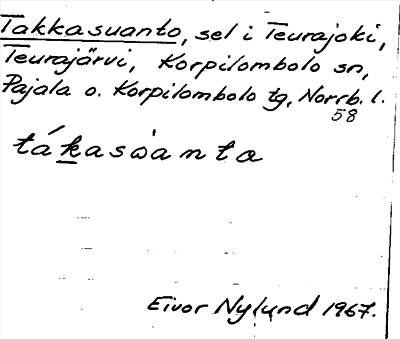 Takkasuanto, sel i Teurajoki,
Teurajärvi, Korpilombolo sn,
Pajala o. Korpilombolo tg, Norrb. l.
58
tákasu̯anta
Eivor Nylund 1967.